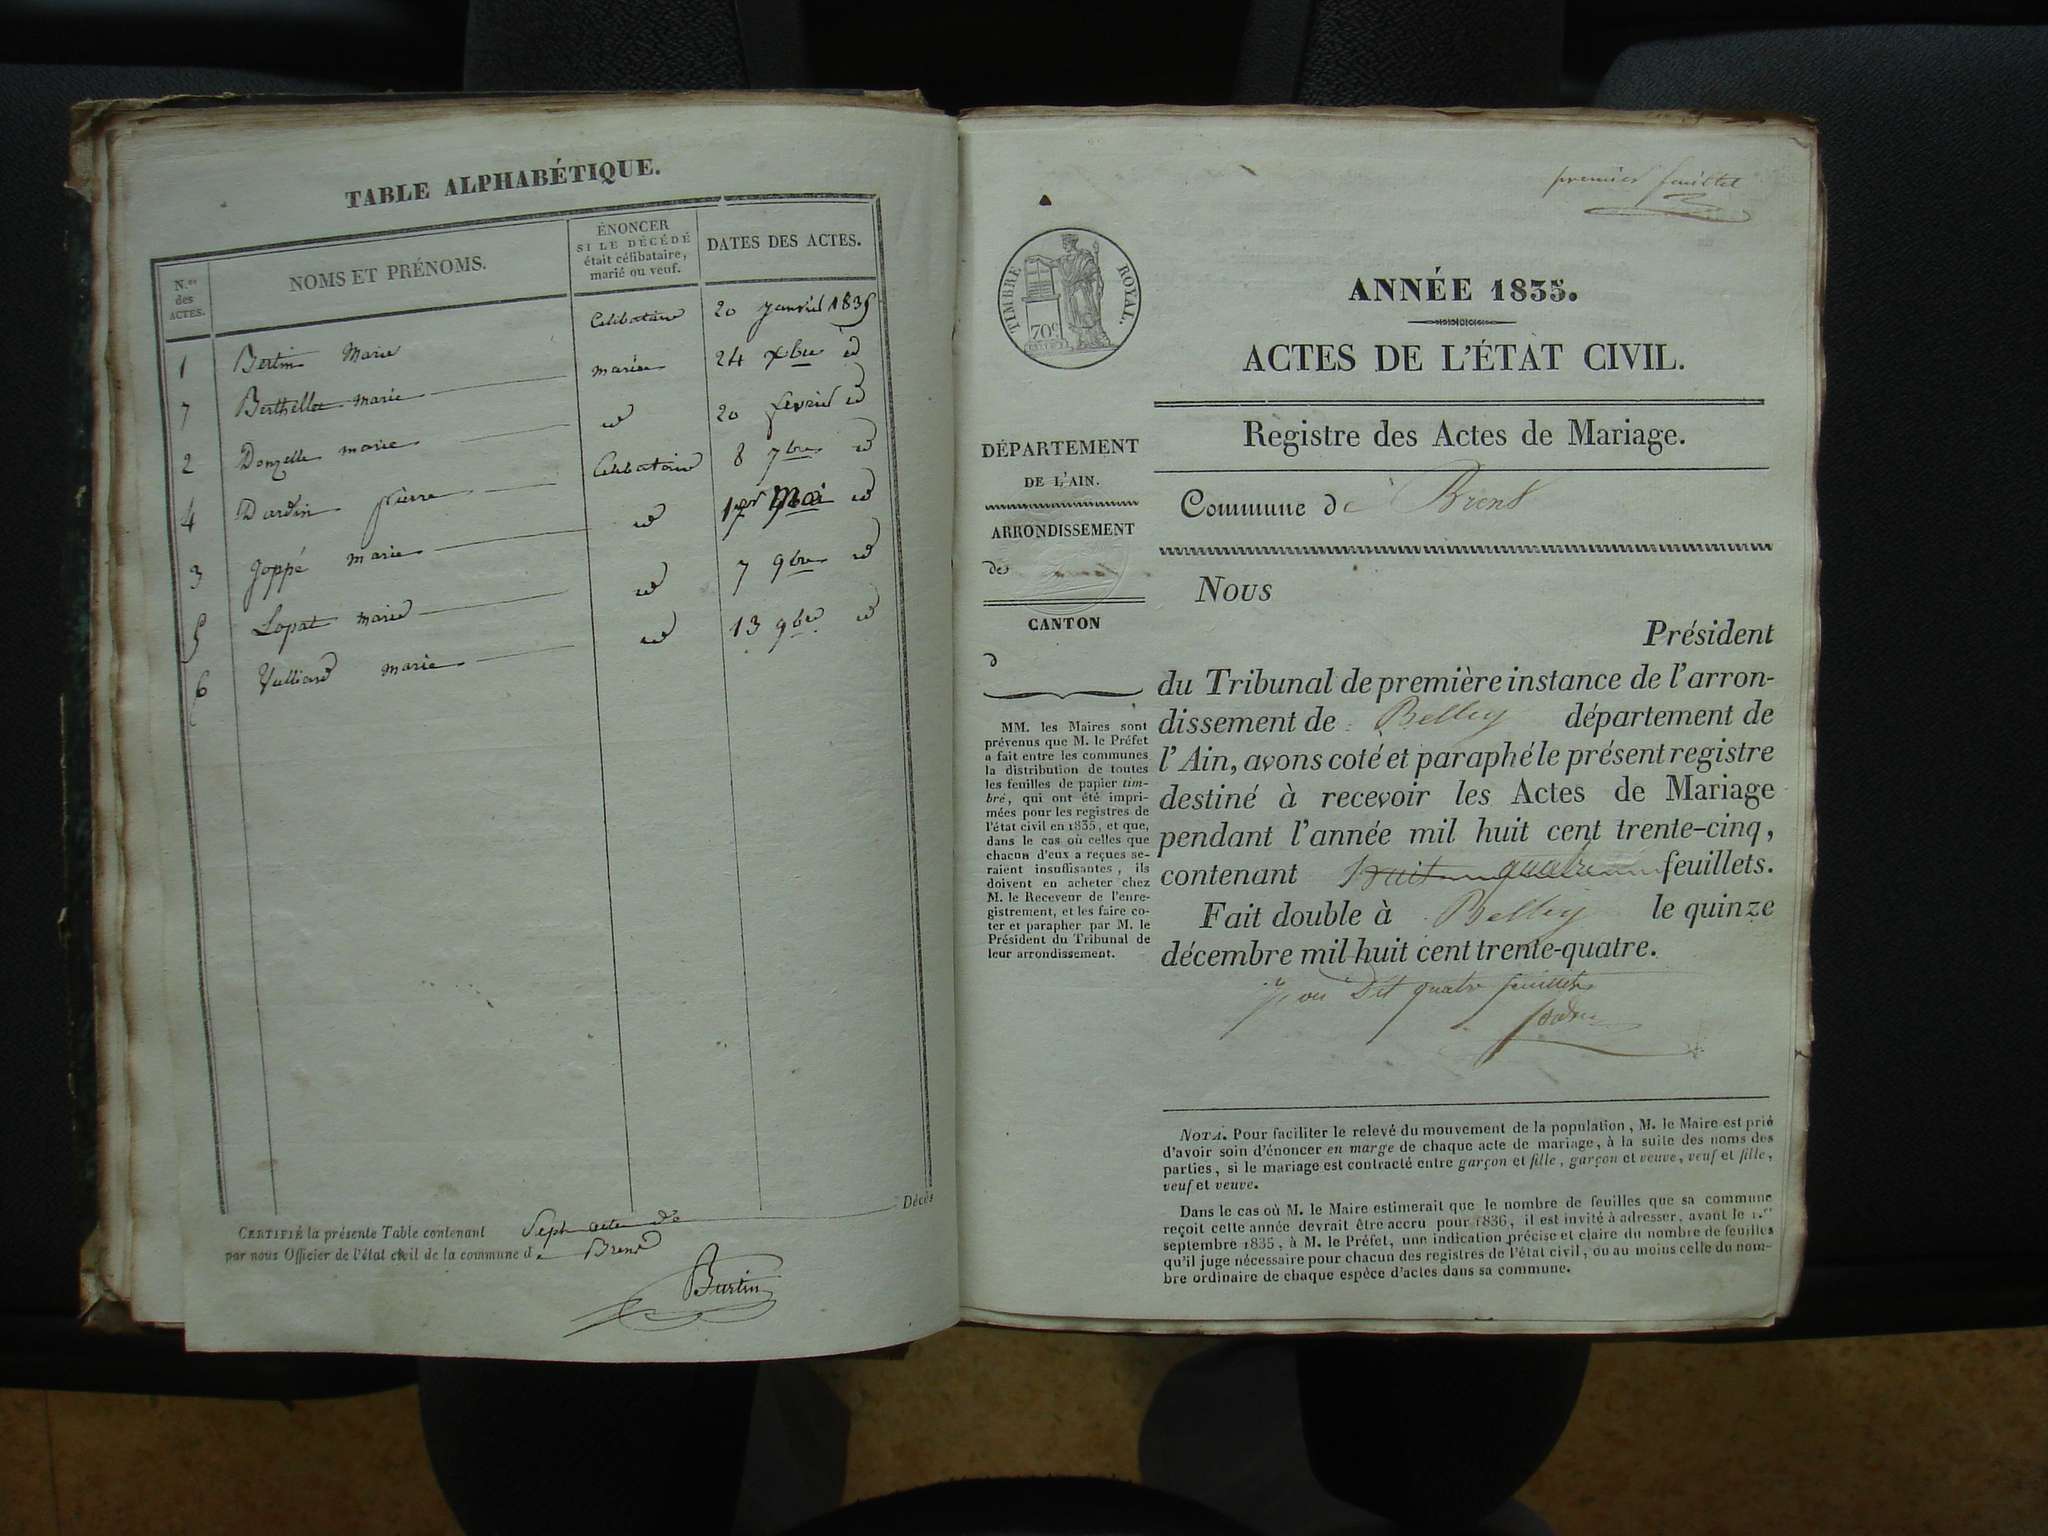 TABLE ALPHABÉTIQUE.
N.os des ACTES.
NOMS ET PRÉNOMS.
ÉNONCER SI LE DÉCÉDÉ était célibataire, marié ou veuf.
DATES DES ACTES.
1 Bertin Marie Celibataire 20 janvier 1835
7 Berthellet marie mariée 24 xbre id
2 Donzelle marie id 20 fevrier id
4 Dardin pierre Celibataire 8 7bre id
3 Joppé marie id 1er Mai id
5 Lopat marie id 7 9bre id
6 Vulliard marie id 13 9bre id
CERTIFIÉ la présente Table contenant Sept actes de Décès
par nous Officier de l'état civil de la commune de Brens
Burtin
premier feuillet
TIMBRE ROYAL.
70c
ANNÉE 1835.
ACTES DE L'ÉTAT CIVIL.
Registre des Actes de Mariage.
Commune de Brens
DÉPARTEMENT
DE L'AIN.
ARRONDISSEMENT
de
CANTON
d
MM. les Maires sont
prévenus que M. le Préfet
a fait entre les communes
la distribution de toutes
les feuilles de papier tim-
bré, qui ont été impri-
mées pour les registres de
l'état civil en 1835, et que,
dans le cas où celles que
chacun d'eux a reçues se-
raient insuffisantes, ils
doivent en acheter chez
M. le Receveur de l'enre-
gistrement, et les faire co-
ter et parapher par M. le
Président du Tribunal de
leur arrondissement.
Nous
Président
du Tribunal de première instance de l'arron-
dissement de Belley département de
l'Ain, avons coté et paraphé le présent registre
destiné à recevoir les Actes de Mariage
pendant l'année mil huit cent trente-cinq,
contenant huit quatre feuillets.
Fait double à Belley le quinze
décembre mil huit cent trente-quatre.
ou Dit quatre feuillets
NOTA. Pour faciliter le relevé du mouvement de la population, M. le Maire est prié
d'avoir soin d'énoncer en marge de chaque acte de mariage, à la suite des noms des
parties, si le mariage est contracté entre garçon et fille, garçon et veuve, veuf et fille,
veuf et veuve.
Dans le cas où M. le Maire estimerait que le nombre de feuilles que sa commune
reçoit cette année devrait être accru pour 1836, il est invité à adresser, avant le 1.er
septembre 1835, à M. le Préfet, une indication précise et claire du nombre de feuilles
qu'il juge nécessaire pour chacun des registres de l'état civil, ou au moins celle du nom-
bre ordinaire de chaque espèce d'actes dans sa commune.